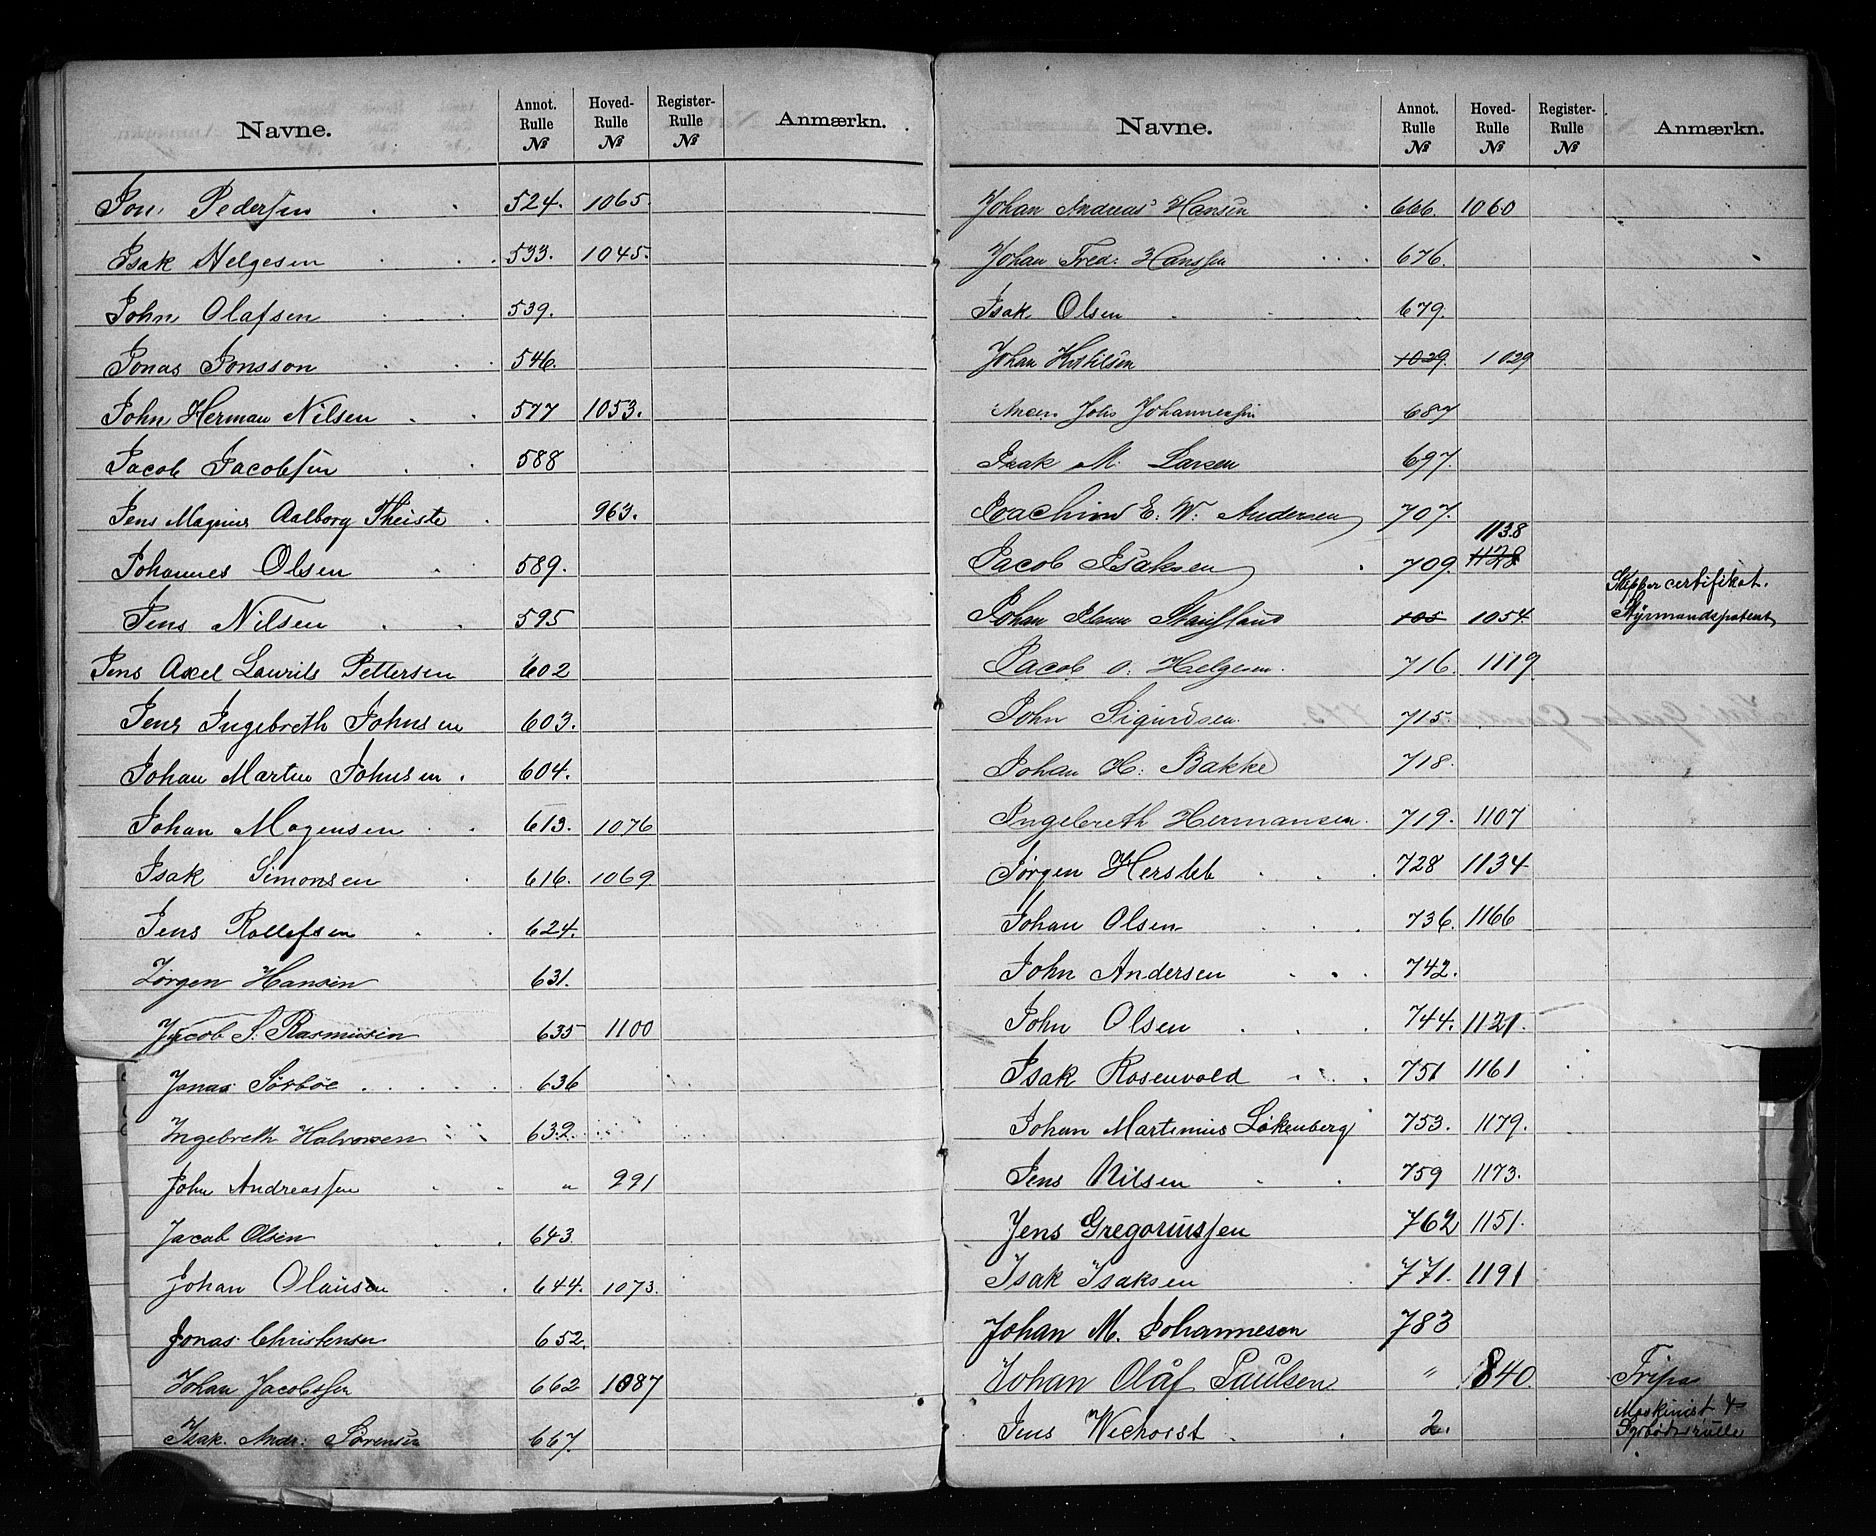 Navne. Annot. Rulle № Hoved-Rulle № Register-Rulle № Anmærkn.
Jon Pedersen 524. 1065.
Isak Helgesen 533. 1045.
John Olafsen 539.
Jonas Jonsson 546.
John Herman Nilsen 577 1053.
Jacob Jacobsen 588
Jens Magnus Aalborg Theiste 963.
Johannes Olsen 589.
Jens Nilsen 595
Jens Axel Laurits Pettersen 602
Jens Ingebreth Johnsen 603.
Johan Martin Johnsen 604.
Johan Mogensen 613. 1076
Isak Simonsen 616. 1069
Jens Rollefsen 624.
Jørgen Hansen 631.
Jacob S. Rasmusen 635 1100
Jonas Sørbøe 636
Ingebreth Halvorsen 632.
John Andreassen " 991
Jacob Olsen 643.
Johan Olausen 644. 1073.
Jonas Christensen 652.
Johan Jacobssen 662 1087
Isak Andr: Sørensen 667.
Navne. Annot. Rulle № Hoved-Rulle № Register-Rulle № Anmærkn.
Johan Andreas Hansen 666. 1060
Johan Fred: Hanssen 676.
Isak Olsen 679.
Johan Kittilsen 1029. 1029
Johs Johannessen 687
Isak M. Larsen 697.
Joachim E. W. Andersen 707.
1138
Jacob Isaksen 709. 1128
Skippercertifikat.
Johan 105 1054 Styrmandspatent
Jacob O. Helgesen. 716. 1119
John Sigurdsen. 715.
Johan H. Bakke 718.
Ingebreth Hermansen. 719. 1107
Jørgen Hersleb 728 1134
Johan Olsen 736. 1166
John Andersen 742.
John Olsen 744. 1121.
Isak Rosenvold 751 1161
Johan Martinius Løkenberg 753. 1179.
Jens Nilsen 759 1173.
Jens Gregoriussen 762 1151.
Isak Isaksen 771. 1191
Johan M. Johannesen 783
Johan Olåf Paulsen " 840. Tripas
Maskinist &
Jens Wechorst 2. Fyrbøderrulle